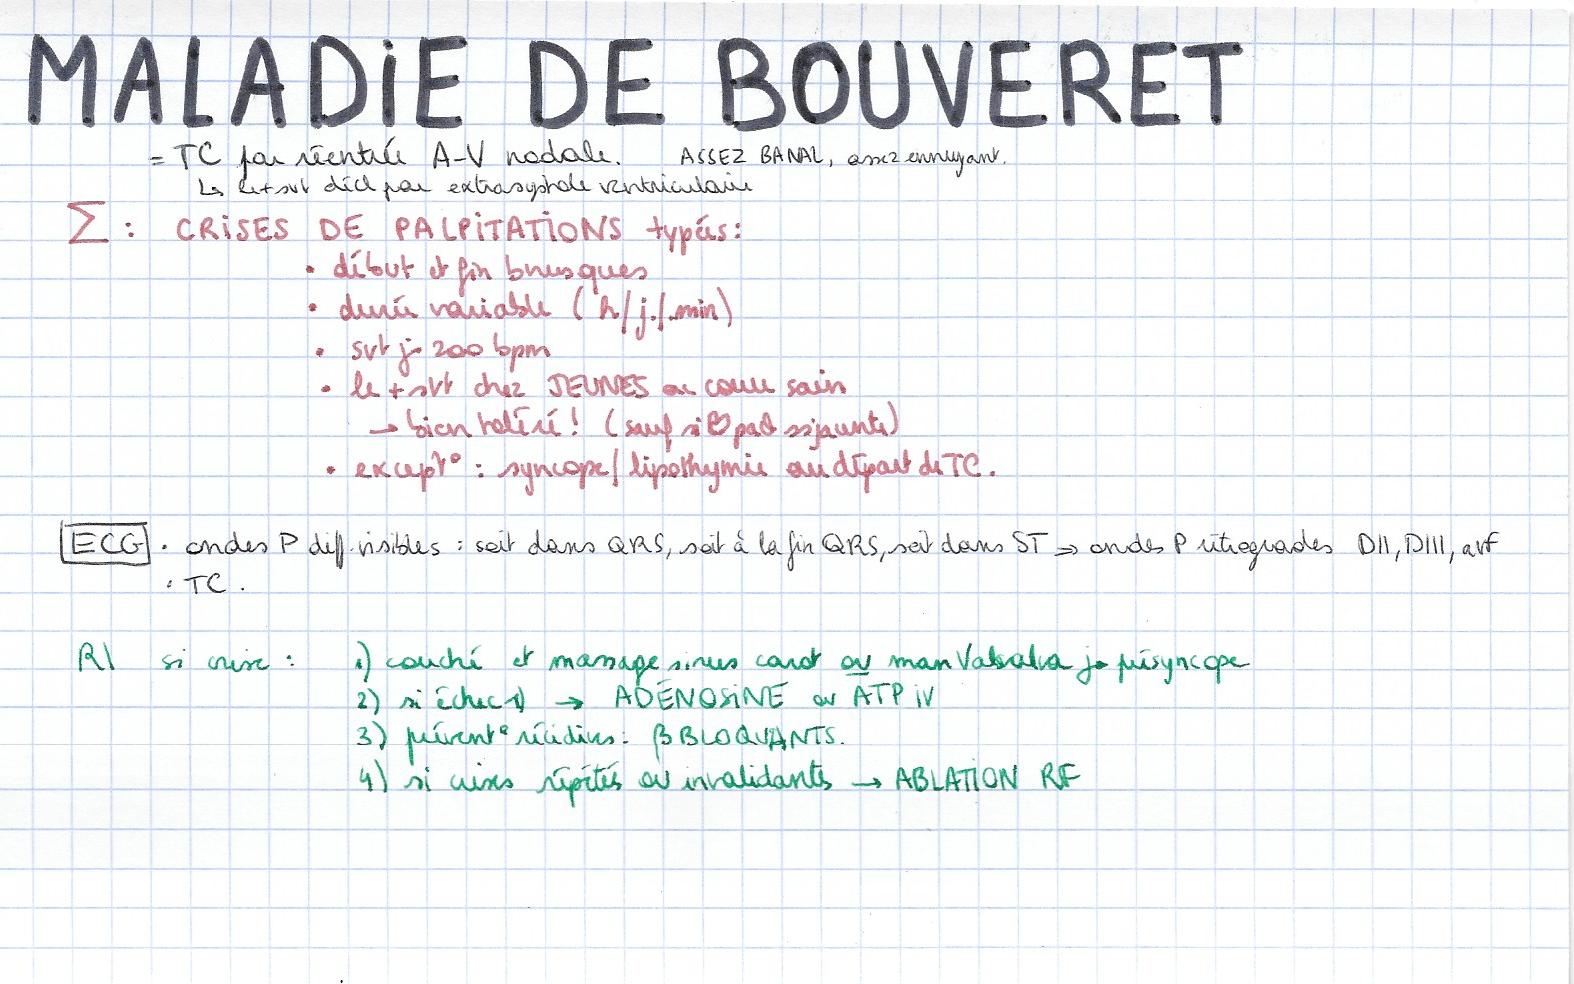 MALADiE DE BOUVERET
= TC par réentrée A-V nodale. ASSEZ BANAL, assez ennuyant.
↳ le + svt décl par extrasystole ventriculaire
Σ : CRiSES DE PALPiTATiONS typées :
• début et fin brusques
• durée variable (h/j./.min)
• svt j. 200 bpm
• le + svt chez JEUNES au coeur sain
→ bien toléré ! (sauf si ♡ pad ssjacente)
• except° : syncope/lipothymie au départ de TC.
ECG • ondes P diff. visibles : soit dans QRS, soit à la fin QRS, soit dans ST => ondes P rétrogrades DII, DIII, avf
• TC.
R\ si crise : 1) couché et massage sinus carot ou man Valsalva j. présyncope
2) si échec 1) → ADÉNOSiNE ou ATP iV
3) prévent° récidives : βBLOQUANTS.
4) si crises répétées ou invalidantes → ABLATiON RF